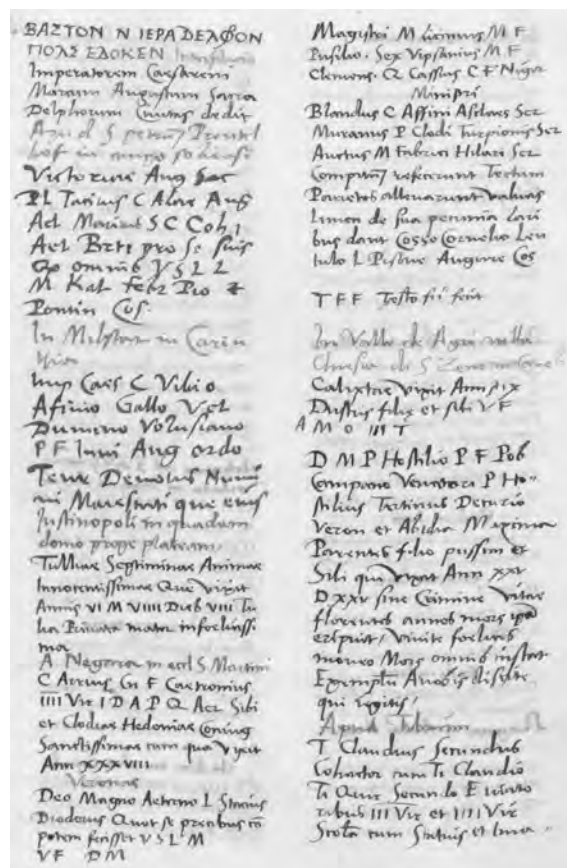 ΒΑΣΤΟΝ Ν ΙΕΡΑ ΔΕΛΦΟΝ
ΠΟΛΣ ΕΔΟΚΕΝ
Imperatorem Caesarem
Augustum
Delphorum Ciuitas dedit
Victoriae Aug Sac
C Alae Aug
Ael S C Coh I
Ael Brti pro se suis
omnib V S L L
M Kal Febr Pio &
Pontin Cos
In in Carin
thia
Imp Caes C Vibio
Afinio Gallo Vel
Dumino Volusiano
P F Inui Aug ordo
Deuotus Numi
ni Maiestatique eius
Justinopoli in quadam
domo prope plateam
Tulliae Septiminae Animae
Innocentissimae Que vixit
Annis VI M VIIII Dieb VIII Tu
lia mater infoelicissi
ma
A in eccl S Martini
C Arrius Gn F
IIII Vir I D A P Q Aer Sibi
et Clodiae Hedoniae Coniug
Sanctissimae cum qua Vixit
Ann XXXVIII
Veronae
Deo Magno Aeterno L Statius
Diodorus Quot se precibus co
potem fecisset V S L M
V F D M
Magistri M Licinius M F
Pusilio. Sex Vipsanius M F
Clemens. Q Cassius C F Niger
Ministri
Blandus C Affini Asclaes Ser
Muranus P Clodi Turpionis Ser
Auctus M Fabrici Hilari Ser
Compitum refecerunt Tectum
Parietes allevarunt valuas
Limen de sua pecunia Lari
bus dant Cosso Cornelio Len
tulo L Pisone Augure Cos
T F F Testo fii feit
In Valle de
di S
Calixtae vixit Ann
filiae et sibi V F
A M O IIII T
D M P Hostilio P F Pob
Campano Venatori P Ho-
stilius Tertinus Decurio
Veron et Abidia Maxima
Parentes filio piissim et
Sibi qui vixit Ann XXV
D XXV sine Crimine Vitae
florentes annos mors ipsa
eripuit / Viuite foelices
moneo Mors omnib instat
Exemplum A vobis discite
qui legitis /
Apud
T Claudius Secundus
Cohactor cum Ti Claudio
Ti Quir Secundo
ribus III Vir et IIII Vir
Scola cum Statuis et Ima-